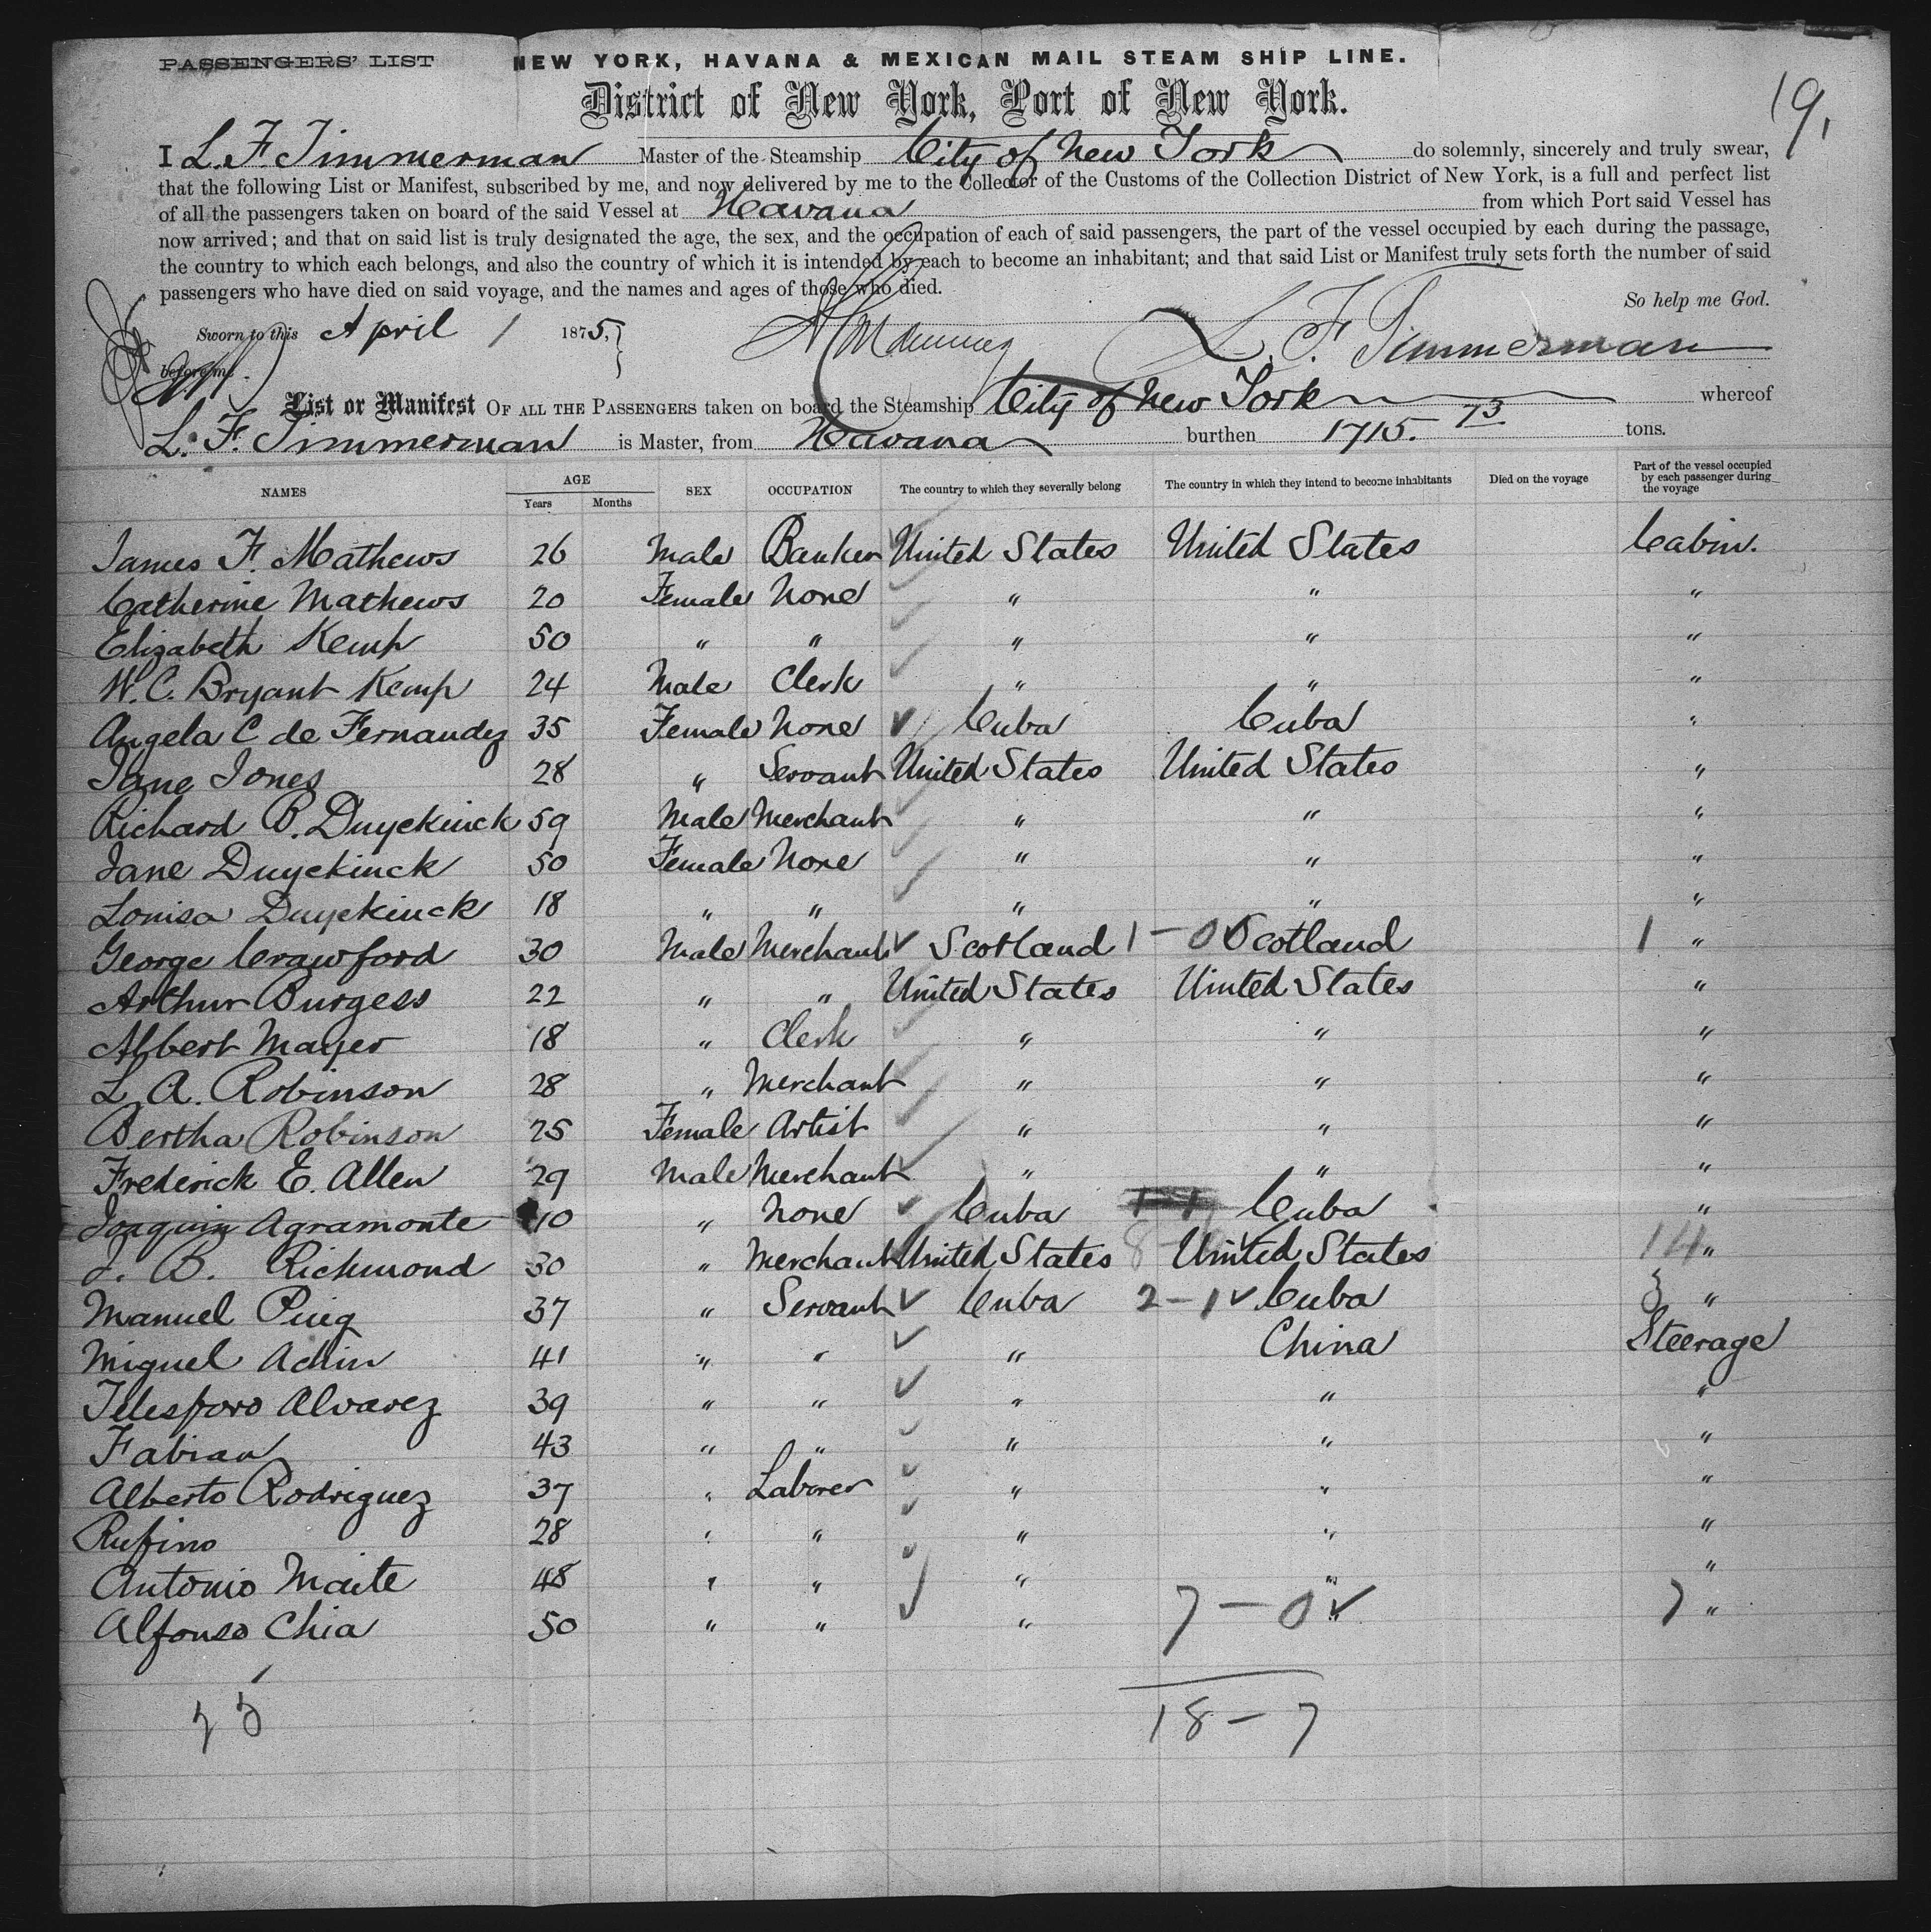 PASSENGERS' LIST
NEW YORK, HAVANA & MEXICAN MAIL STEAM SHIP LINE.
19,
District of New York, Port of New York.
I L. F. Timmerman Master of the Steamship City of New York do solemnly, sincerely and truly swear,
that the following List or Manifest, subscribed by me, and now delivered by me to the Collector of the Customs of the Collection District of New York, is a full and perfect list
of all the passengers taken on board of the said Vessel at Havana from which Port said Vessel has
now arrived; and that on said list is truly designated the age, the sex, and the occupation of each of said passengers, the part of the vessel occupied by each during the passage,
the country to which each belongs, and also the country of which it is intended by each to become an inhabitant; and that said List or Manifest truly sets forth the number of said
passengers who have died on said voyage, and the names and ages of those who died.
So help me God.
Sworn to this April 1 1875, L. F. Timmerman
before me
List or Manifest OF ALL THE PASSENGERS taken on board the Steamship City of New York whereof
L. F. Timmerman is Master, from Havana burthen 1715. 73 tons.
NAMES AGE Years Months SEX OCCUPATION The country to which they severally belong The country in which they intend to become inhabitants Died on the voyage Part of the vessel occupied by each passenger during the voyage
James F. Mathews 26 Male Banker United States United States Cabin.
Catherine Mathews 20 Female None " " "
Elizabeth Kemp 50 " " " " "
W. C. Bryant Kemp 24 Male Clerk " " "
Angela C de Fernandez 35 Female None Cuba Cuba "
Jane Jones 28 " Servant United States United States "
Richard B. Duyckinck 59 Male Merchant " " "
Jane Duyckinck 50 Female None " " "
Louisa Duyckinck 18 " " " " "
George Crawford 30 Male Merchant Scotland 1-0 Scotland 1 "
Arthur Burgess 22 " " United States United States "
Albert Mayer 18 " Clerk " " "
L. A. Robinson 28 " Merchant " " "
Bertha Robinson 25 Female Artist " " "
Frederick E. Allen 29 Male Merchant " " "
Joaquin Agramonte 10 " None Cuba Cuba "
J. B. Richmond 30 " Merchant United States United States 14 "
Manuel Puig 37 " Servant Cuba 2-1 Cuba 3 "
Miguel Achin 41 " " " China Steerage
Telesforo Alvarez 39 " " " " "
Fabian 43 " " " " "
Alberto Rodriguez 37 " Laborer " " "
Rufino 28 " " " " "
Antonio Maite 48 " " " " "
Alfonso Chia 50 " " " 7-0 " 7 "
25
18-7